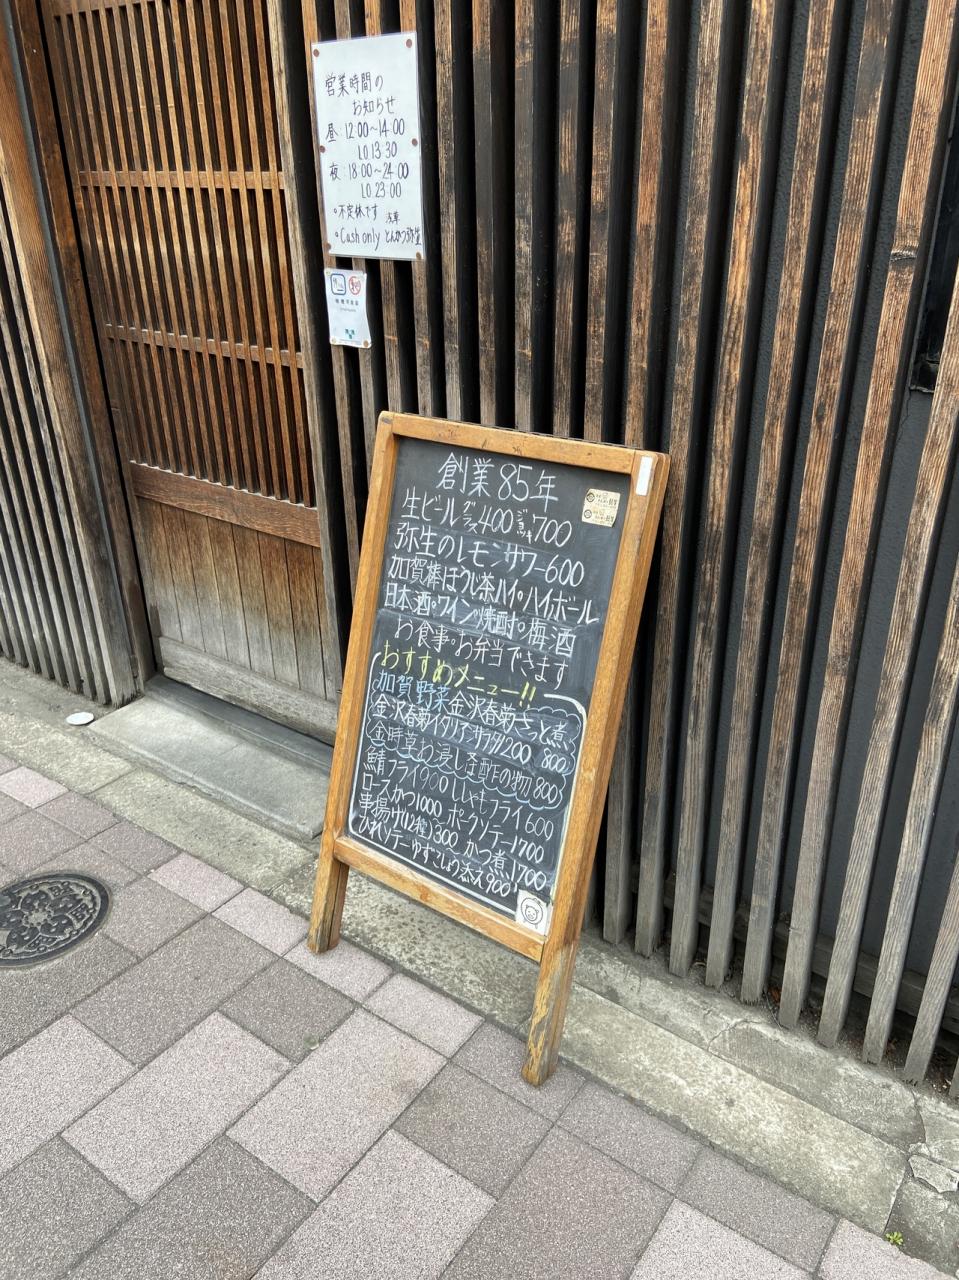 営業時間の
お知らせ
昼:12:00〜14:00
LO 13:30
夜:18:00〜24:00
LO 23:00
◦不定休です 浅草
◦Cash only とんかつ弥生
創業85年
生ビール グラス400 ジョッキ700
弥生のレモンサワー600
加賀棒ほうじ茶ハイ・ハイボール
日本酒・ワイン・焼酎・梅酒
お食事・お弁当できます
おすすめメニュー!!
加賀野菜 金沢春菊さっと煮 800
金沢春菊イタリアンサラダ1200
金時草お浸し 酢の物800
鯖フライ900 ししゃもフライ600
ロースかつ1000 ポークソテー1700
串揚げ(2種)1300 かつ煮1700
ひれソテーゆずこしょう添え900